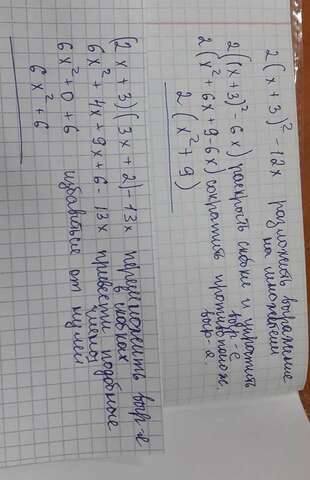 2(x+3)² - 12x разложить выражение
на множители
2((x+3)² - 6x) раскрыть скобки и упростить
выр-е
2(x²+6x+9 6x) сократить противополож.
выр-е.
2(x²+9)
(2x+3)(3x+2)-13x перемножить выр-е
в скобках
6x²+4x+9x+6-13x привести подобные
члены
6x²+0+6 избавиться от нулей
6x²+6